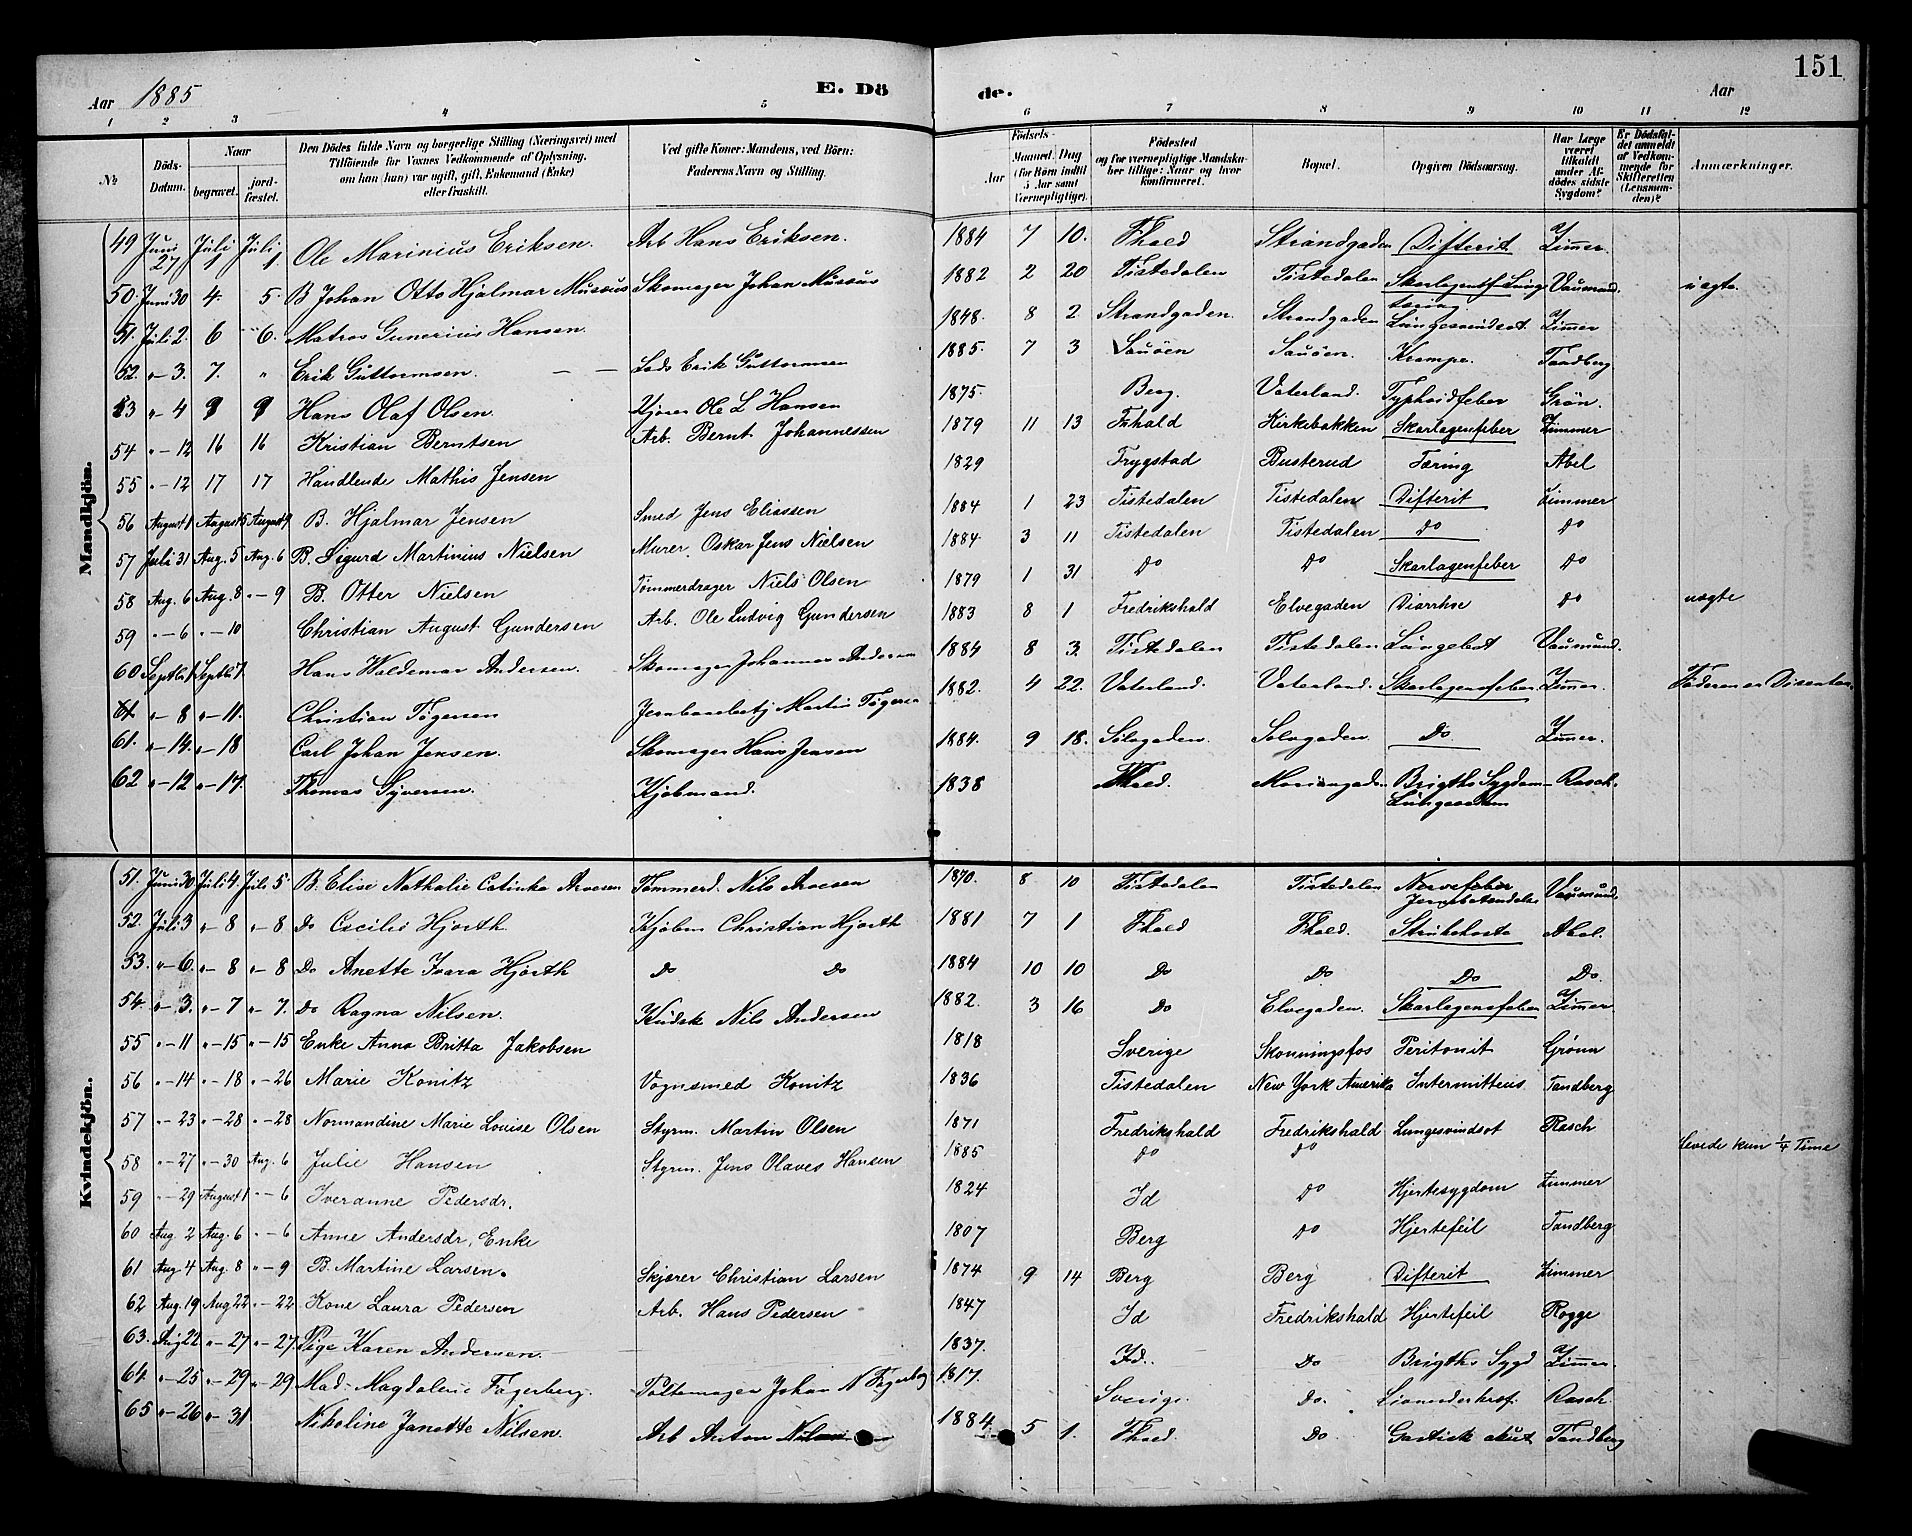 Aar 1885
E. Dö de.
Aar
151
1 2 3 4 5 6 7 8 9 10 11 12
№
Döds-Datum.
Naar begravet.
jord-fæstet.
Den Dödes fulde Navn og borgerlige Stilling (Næringsvei) med Tilföiende for Voxnes Vedkommende af Oplysning, om han (hun) var ugift, gift, Enkemand (Enke) eller fraskilt.
Ved gifte Koner: Mandens, ved Börn: Faderens Navn og Stilling.
Födsels-
Aar
Maaned. Dag (for Börn indtil 5 Aar samt Værnepligtige).
Födested og for værnepligtige Mandskaber tillige: Naar og hvor konfirmeret.
Bopæl.
Opgiven Dödsaarsag.
Har Læge været tilkaldt under Afdödes sidste Sygdom?
Er Dödsfaldet anmeldt af Vedkommende for Skifteretten (Lensmanden)?
Anmærkninger.
Mandkjön.
49 Juni 27 Juli 1 Juli 1. Ole Marinius Eriksen. Arb Hans Eriksen. 1884 7 10. Fhald Strandgaden Difterit Zimmer.
50. Juni 30 4. 5. B Johan Otto Hjalmar Musæus Skomager Johan Musæus 1882 2 20 Tistedalen Tistedalen Vaumund. uægte.
51. Juli 2. 6 6. Matros Gunerius Hansen. 1848. 8 2 Strandgaden. Strandgaden Lungesvindsot. Zimmer
52. " 3. 7. " Erik Guttormsen. Erik Guttormsen 1885. 7 3 Sauöen Sauöen. Krampe. Tandberg
53 " 4 9 9 Hans Olaf Olsen. Ole L Hansen 1875. Berg. Vaterland. Typhoidfeber Grön.
54 " 12 16 16 Kristian Berntsen Arb. Bernt Johannessen 1879 11 13 Fhald Kirkebakken Skarlagenfeber Zimmer
55 " 12 17 17 Handlende Mathis Jensen 1829 Trygstad Busterud Tæring Abel
56 August 1 August 5 August 9 B. Hjalmar Jensen Smed Jens Eliassen 1884 1 23 Tistedalen Tistedalen Difterit Zimmer
57 Juli 31 Aug. 5 Aug. 6 B. Sigurd Martinius Nielsen Murer. Oskar Jens Nielsen 1884 3 11 Tistedalen Tistedalen Do Do
58 Aug. 6 Aug. 8 " 9 B. Otter Nielsen Tömmerdrager Niels Olsen 1879 1 31 Do Do Skarlagenfeber Do
59 " 6 " 10 Christian August Gundersen Arb. Ole Ludvig Gundersen 1883 8 1 Fredrikshald Elvegaden Diarrhoe Do uægte
60 Septbr 1 Septbr 7. Hans Waldemar Andersen. Skomager Johannes Andersen 1884 8 3. Tistedalen Tistedalen Vaumund.
" 8 " 11. Christian Tögersen Martin Tögersen 1882. 4 22. Vaterland. Vaterland. Skarlagensfeber. Zimmer. Faderen er Disenter.
61. " 14. " 18 Carl Johan Jensen. Skomager Hans Jensen 1884. 9 18. Sölvgaden. Solvgaden. Do. Zimmer.
62 " 12 " 17. Thomas Syversen. Kjöbmand. 1838 Fhald. Brigths Sygdom Rasch.
Kvindekjön.
51. Juni 30 Juli 4. Juli 5 B. Elise Nathalie Catinka Arvesen Tömmerd. Nils Arvesen 1870. 8 10 Tistedalen Tistedalen Nervefeber Vaumund.
52. Juli 3 " 8 " 8 Do Cecilie Hjorth. Kjöbm Christian Hjorth 1881 7 1 Fhald Fhald. Strubehoste Abel.
53. " 6. " 8 " 8 Do Anette Ivara Hjorth Do Do 1884 10 10 Do Do Do Do.
54. " 3. " 7 " 7. Do Ragna Nilsen. Kudsk Nils Andersen 1882. 3 16 Do Elvegaden. Skarlagensfeber Zimmer
55 " 11 " 15 " 15 Enke Anna Britta Jakobsen 1818 Sverige Skonningsfos Peritonit Grönn
56 " 14 " 18 " 26 Marie Konitz Vognsmed Konitz 1836 Tistedalen New York Amerika Intermittens Tandberg
57 " 23 " 28 " 28 Normandine Marie Lovise Olsen Styrm. Martin Olsen 1871 Fredrikshald Fredrikshald Lungesvindsot Rasch
58 " 27 " 30 Aug. 6 Julie Hansen Styrm. Jens Olaves Hansen 1885 Do Do Levede kun 1/4 Time
59 " 29 August 1 " 6 Iveranne Pedersdr. 1824 Id Do Hjertesygdom Zimmer
60 Aug. 2 Aug. 6 " 6 Anne Andersdr, Enke 1807 Berg Do Hjertefeil Tandberg
61 Aug 4 Aug. 8 " 9 B. Martine Larsen. Skjærer Christian Larsen 1874 9 14 Berg Berg Difterit Zimmer
62 Aug. 19 Aug 22 " 22 Kone Laura Pedersen Arb. Hans Pedersen 1847 Id Fredrikshald Hjertefeil Rogge
63. Aug 22 " 27 " 27. Pige Karen Andersen. 1837. Id. Do Brigths Sygd Zimmer.
64. " 25 " 29 " 29 Mad. Magdalene Fagerberg. Pottemager Johan N Fagerberg 1817. Sverige. Do. Rasch.
65 " 26 " 31 Nikoline Janette Nilsen. Arb Anton Nilsen 1884. 5 1. Fhald. Do Gastisk akut Tandberg